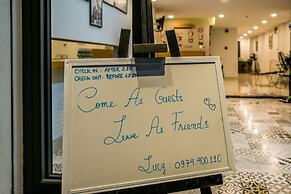 CHECK IN : AFTER 2 PM
CHECK OUT: BEFORE 12 PM
Come As Guests
Leave As Friends
Lucy: 0974.400.110